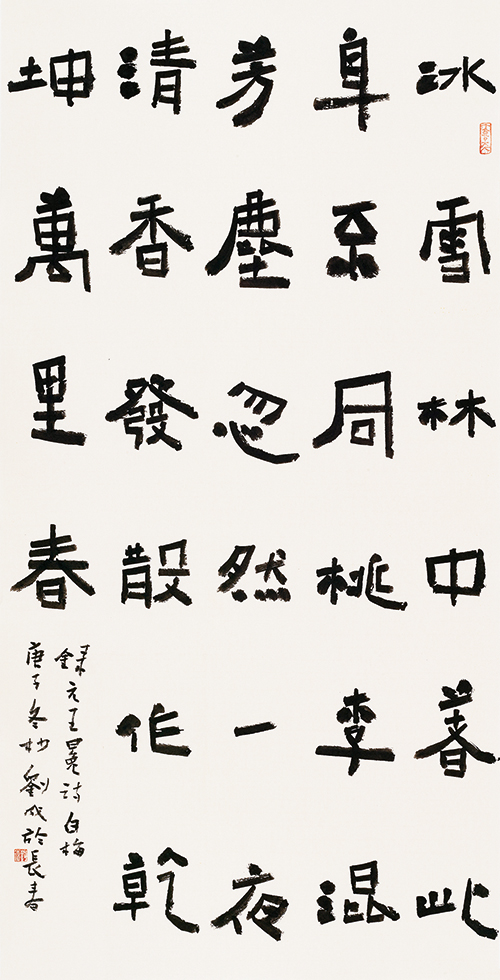 冰雪林中著此
身不同桃李混
芳塵忽然一夜
清香發散作乾
坤萬里春
錄元王冕詩白梅
庚子冬杪劉成於長春